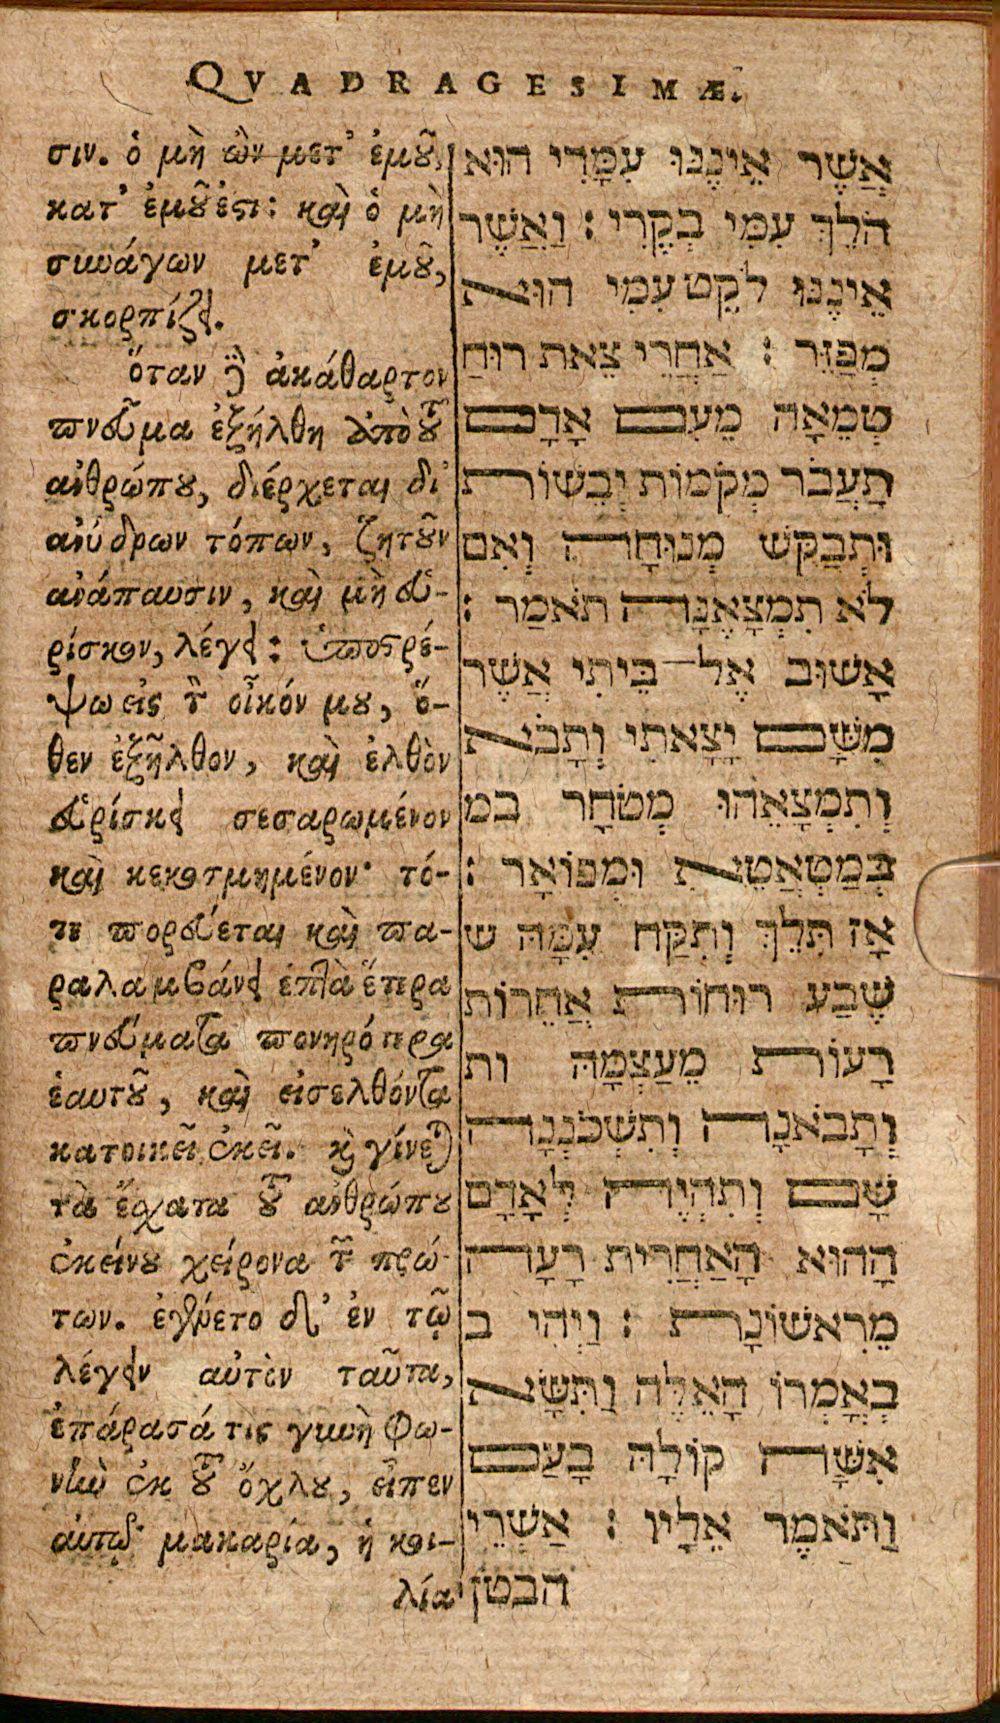 QVADRAGESIMÆ.
σιν. ὁ μὴ ὢν μετ' ἐμοῦ,
κατ' ἐμοῦ ἐστι: καὶ ὁ μὴ
συνάγων μετ' ἐμοῦ,
σκορπίζει.
ὅταν δὲ ἀκάθαρτον
πνεῦμα ἐξήλθη ἀπὸ τοῦ
ἀνθρώπου, διέρχεται δι'
ἀνύδρων τόπων, ζητοῦν
ἀνάπαυσιν, καὶ μὴ εὑ-
ρίσκον, λέγει: ὑποστρέ-
ψω εἰς τὸν οἶκόν μου, ὅ-
θεν ἐξῆλθον, καὶ ἐλθὸν
εὑρίσκει σεσαρωμένον
καὶ κεκοσμημένον· τό-
τε πορεύεται καὶ πα-
ραλαμβάνει ἑπτὰ ἕτερα
πνεύματα πονηρότερα
ἑαυτοῦ, καὶ εἰσελθόντα
κατοικεῖ ἐκεῖ. καὶ γίνεται
τὰ ἔσχατα τοῦ ἀνθρώπου
ἐκείνου χείρονα τῶν πρώ-
των. ἐγένετο δὲ ἐν τῷ
λέγειν αὐτὸν ταῦτα,
ἐπάρασά τις γυνὴ φω-
νὴν ἐκ τοῦ ὄχλου, εἶπεν
αὐτῷ· μακαρία, ἡ κοι-
λία
אֲשֶׁר אֵינֶנּוּ עִמָּדִי הוּא
הֹלֵךְ עִמִּי בְקֶרִי : וַאֲשֶׁר
אֵינֶנּוּ לֹקֵט עִמִּי הוּא
מְפַזֵּר : אַחֲרֵי צֵאת רוּחַ
טְמֵאָה מֵעִם אָדָם
תַּעֲבֹר מְקֹמוֹת יְבֵשׁוֹת
וּתְבַקֵּשׁ מְנוּחָה וְאִם
לֹא תִמְצָאֶנָּה תֹּאמַר :
אָשׁוּב אֶל־בֵּיתִי אֲשֶׁר
מִשָּׁם יָצָאתִי וְתָבֹא
וְתִמְצָאֵהוּ מְטֹחָר במ
בְּמַטְאֲטֵא וּמְפוֹאָר :
אָז תֵּלֵךְ וְתִקַּח עִמָּהּ ש
שֶׁבַע רוּחוֹת אֲחֵרוֹת
רָעוֹת מֵעַצְמָהּ ות
וְתָבֹאנָה וְתִשְׁכֹּנְנָה
שָׁם וְתִהְיֶה לְאָדָם
הָהוּא הָאַחֲרִית רָעָה
מֵרִאשׁוֹנָת : וַיְהִי ב
בְּאָמְרוֹ הָאֵלֶּה וַתִּשָּׂא
אִשָּׁה קוֹלָהּ בָּעַם
וַתֹּאמֶר אֵלָיו : אַשְׁרֵי
הבטן